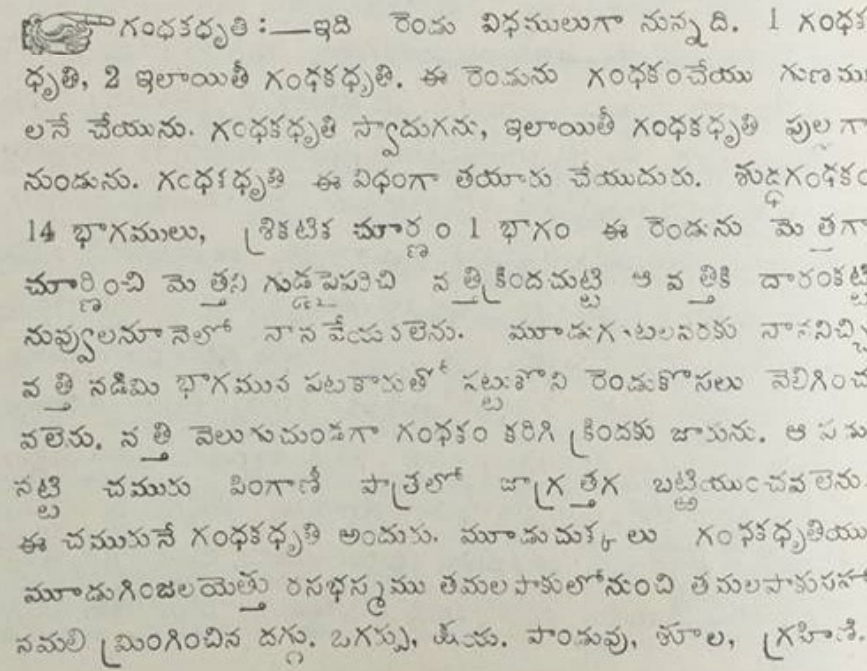 గంధకధృతి :—ఇది రెండు విధములుగా నున్నది. 1 గంధక
ధృతి, 2 ఇలాయితీ గంధకధృతి. ఈ రెండును గంధకంచేయు గుణము
లనే చేయును. గంధకధృతి స్వాదుగను, ఇలాయితీ గంధకధృతి పుల్లగా
నుండును. గంధకధృతి ఈ విధంగా తయారు చేయుదురు. శుద్ధగంధకం
14 భాగములు, త్రికటిక చూర్ణం 1 భాగం ఈ రెండును మెత్తగా
చూర్ణించి మెత్తని గుడ్డపైపరిచి వత్తిక్రిందచుట్టి ఆ వత్తికి దారంకట్టి
నువ్వులనూనెలో నానవేయవలెను. మూడుగంటలవరకు నాననిచ్చి
వత్తి నడిమి భాగమున పటకారుతో పట్టుకొని రెండుకొసలు వెలిగించ
వలెను. వత్తి వెలుగుచుండగా గంధకం కరిగి క్రిందకు జారును. ఆ పడు
నట్టి చమురు పింగాణీ పాత్రలో జాగ్రత్తగ బట్టియుంచవలెను.
ఈ చమురునే గంధకధృతి అందురు. మూడుచుక్కలు గంధకధృతియు
మూడుగింజలయెత్తు రసభస్మము తమలపాకులోనుంచి తమలపాకుసహా
నమలి మ్రింగించిన దగ్గు. ఒగర్పు, క్షయ. పాండువు, శూల, గ్రహిణి.